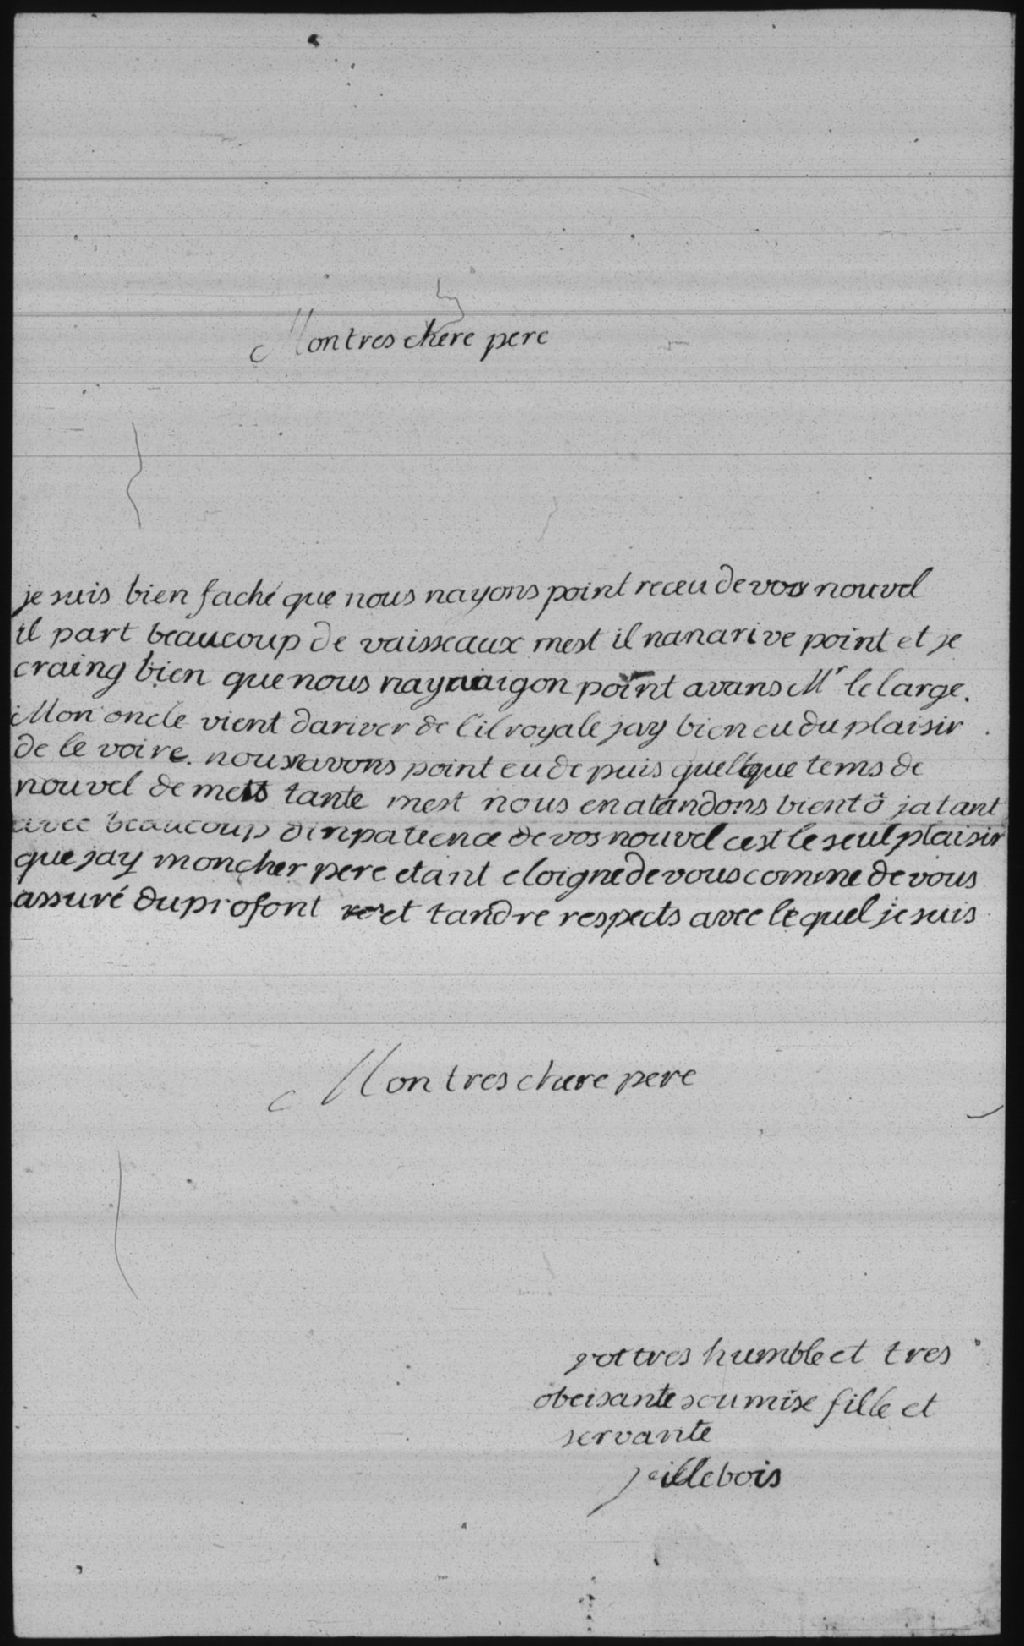 Mon tres chere pere
je suis bien faché que nous nayons point receu de vos nouvel
il part beaucoup de vaisseaux mest il nanarive point et je
craing bien que nous nay aigon point avans Mr le large.
Mon oncle vient dariver de lil royale jay bien eu du plaisir
de le voire. nous navons point eu de puis quelque tems de
nouvel de mes tante mest nous en atandons bientô jatant
avec beaucoup dinpatience de vos nouvel cest le seul plaisir
que jay mon cher pere etant eloigné de vous comme de vous
assuré du profont et tandre respects avec le quel je suis
Mon tres chere pere
vot tres humble et tres
obeisante soumise fille et
servante